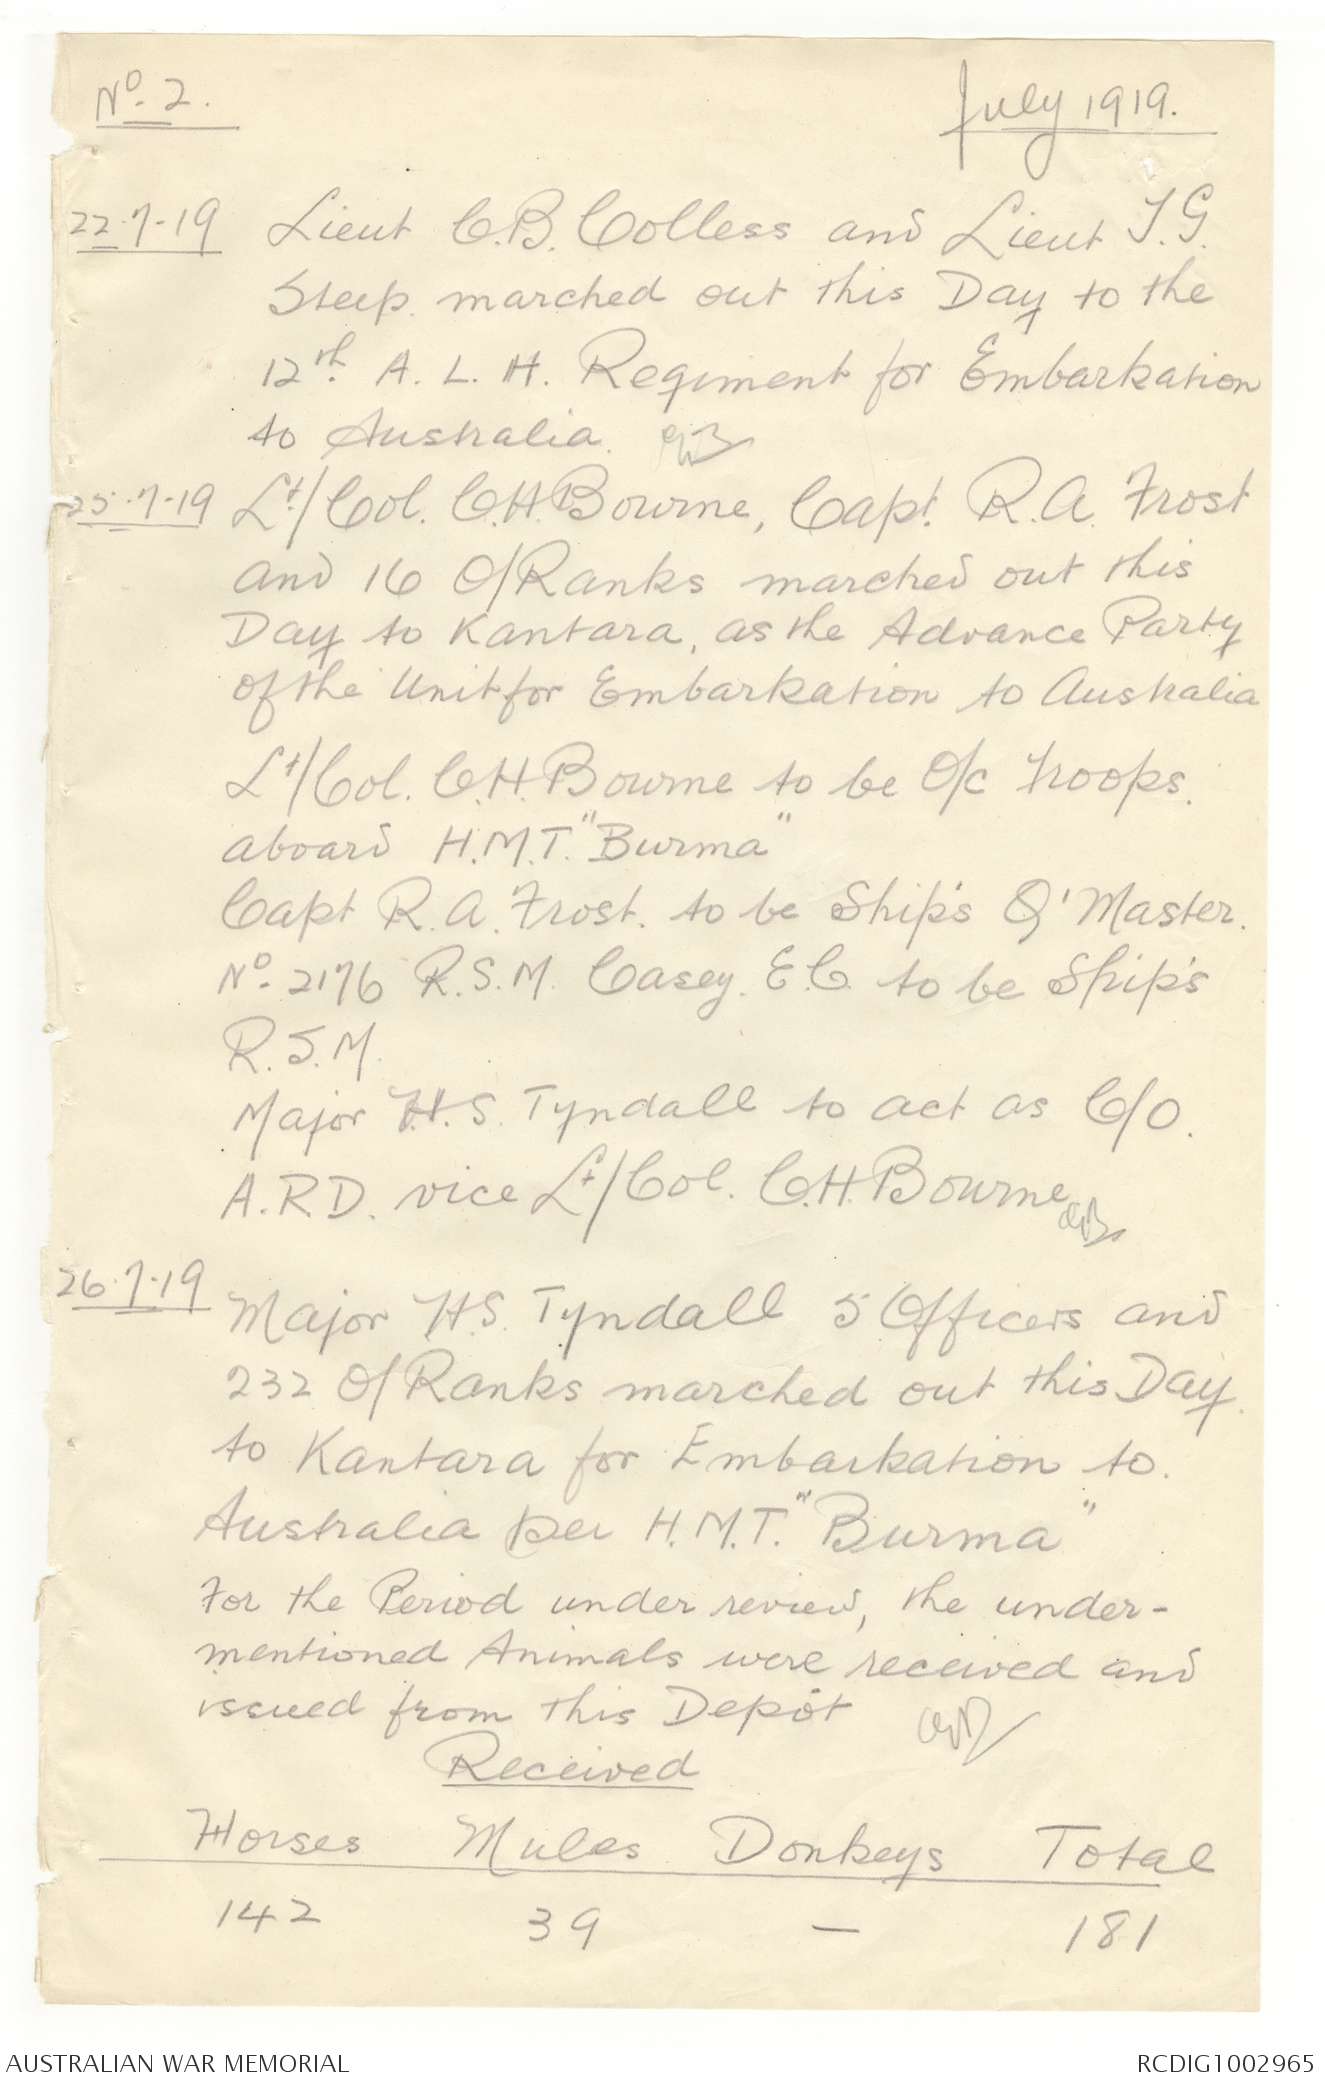 No. 2.
July 1919.
22.7.19 Lieut C.B. Colless and Lieut T.G.
Steep. marched out this Day to the
12th. A. L. H. Regiment for Embarkation
to Australia.
25.7.19 Lt/Col. C.H. Bourne, Capt. R.A. Frost
and 16 O/Ranks marched out this
Day to Kantara, as the Advance Party
of the Unit for Embarkation to Australia
Lt/Col. C.H. Bourne to be O/c Troops.
aboard H.M.T. "Burma"
Capt R.A. Frost. to be Ship's Q'Master.
No. 2176 R.S.M. Casey. E.C. to be Ship's
R.S.M.
Major H.S. Tyndall to act as C/O.
A.R.D. vice Lt/Col. C.H. Bourne
26.7.19 Major H.S. Tyndall 5 Officers and
232 O/Ranks marched out this Day.
to Kantara for Embarkation to.
Australia per H.M.T. "Burma"
For the Period under review, the under-
mentioned Animals were received and
issued from this Depôt
Received
Horses Mules Donkeys Total
142 39 — 181
AUSTRALIAN WAR MEMORIAL
RCDIG1002965